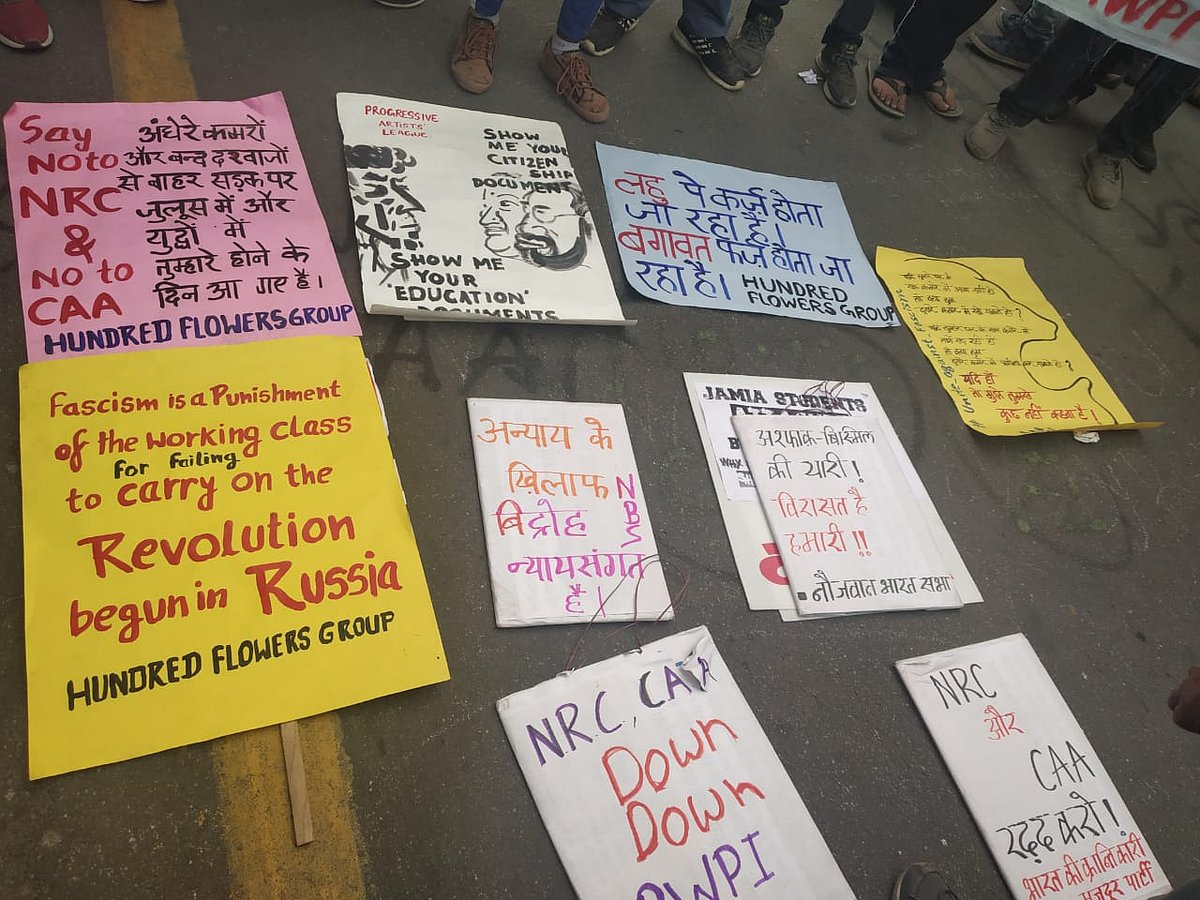 RWPI
Say
NO to
NRC
&
NO to
CAA
अंधेरे कमरों
और बन्द दरवाजों
से बाहर सड़क पर
जुलूस में और
युद्धों में
तुम्हारे होने के
दिन आ गए है।
HUNDRED FLOWERS GROUP
PROGRESSIVE
ARTISTS'
LEAGUE
SHOW
ME YOUR
CITIZEN
SHIP
DOCUMENT
SHOW ME
YOUR
'EDUCATION'
DOCUMENTS
लहु पे कर्ज़ होता
जा रहा है।
बगावत फर्ज होता जा
रहा है।
HUNDRED
FLOWERS GROUP
यदि हाँ
तो मुझे तुमसे
कुछ नहीं कहना है।
Fascism is a Punishment
of the working class
For Failing
to carry on the
Revolution
begun in Russia
HUNDRED FLOWERS GROUP
अन्याय के
ख़िलाफ
बिद्रोह
न्यायसंगत
है।
NBS
JAMIA STUDENTS
अश्फाक-बिस्मिल
की यारी!
विरासत है
हमारी!!
नौजवान भारत सभा
NRC, CAA
Down
Down
RWPI
NRC
और
CAA
रद्द करो!
भारत की क्रान्तिकारी
मज़दूर पार्टी